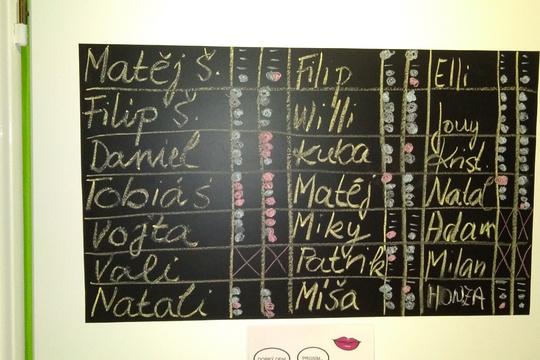 Matěj Š. Filip Elli
Filip Š. Willi
Daniel Kuba Jouy
Krist.
Tobiáš Matěj Natal
Vojta Miky Adam
Vali Patrik Milan
Natali Míša HONZA
DOBRÝ DEN PROSÍM...